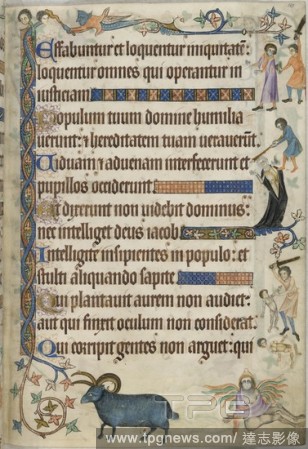 Effabuntur et loquentur iniquitatem:
loquentur omnes qui operantur in
iusticiam
Populum tuum domine humilia
uerunt: ⁊ hereditatem tuam uexauerunt.
Uiduam ⁊ aduenam interfecerunt et
pupillos occiderunt
Et dixerunt non uidebit dominus:
nec intelliget deus iacob
Intelligite insipientes in populo: et
stulti aliquando sapite
Qui plantauit aurem non audiet:
aut qui finxit oculum non considerat:
Qui corripit gentes non arguet: qui
TPG
www.tpgnews.com/ 達志影像